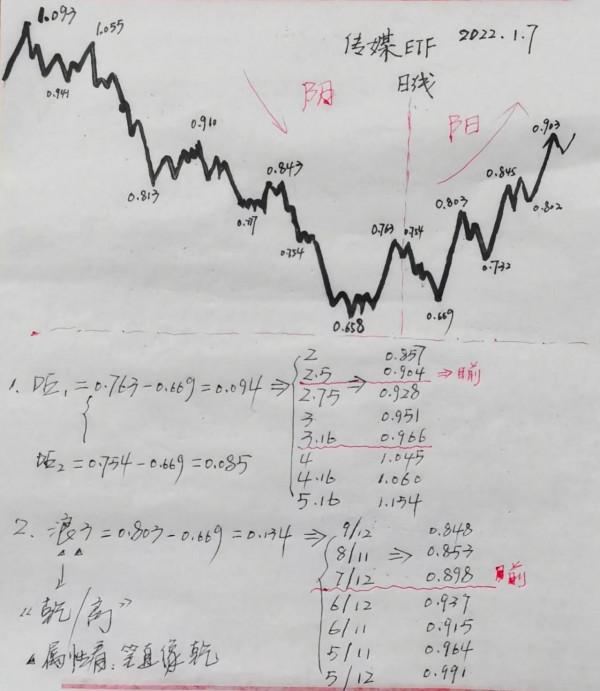 1.093
1.055
传媒ETF 2022.1.7
日线
0.941
阴
阳
0.910
0.903
0.813
0.843
0.845
0.717
0.803
0.802
0.754
0.763
0.754
0.732
0.658
0.669
1. 距1=0.763-0.669=0.094⇒
2 0.857
2.5 0.904 ⇒目前
2.75 ⇒ 0.928
3 0.951
3.16 0.966
4 1.045
4.16 1.060
5.16 1.154
距2=0.754-0.669=0.085
2. 浪3=0.803-0.669=0.134⇒
9/12 0.848
8/11 ⇒ 0.853
7/12 0.898 目前
6/12 0.937
6/11 0.915
5/11 0.964
5/12 0.991
"乾/高"
属性看:笔直像乾